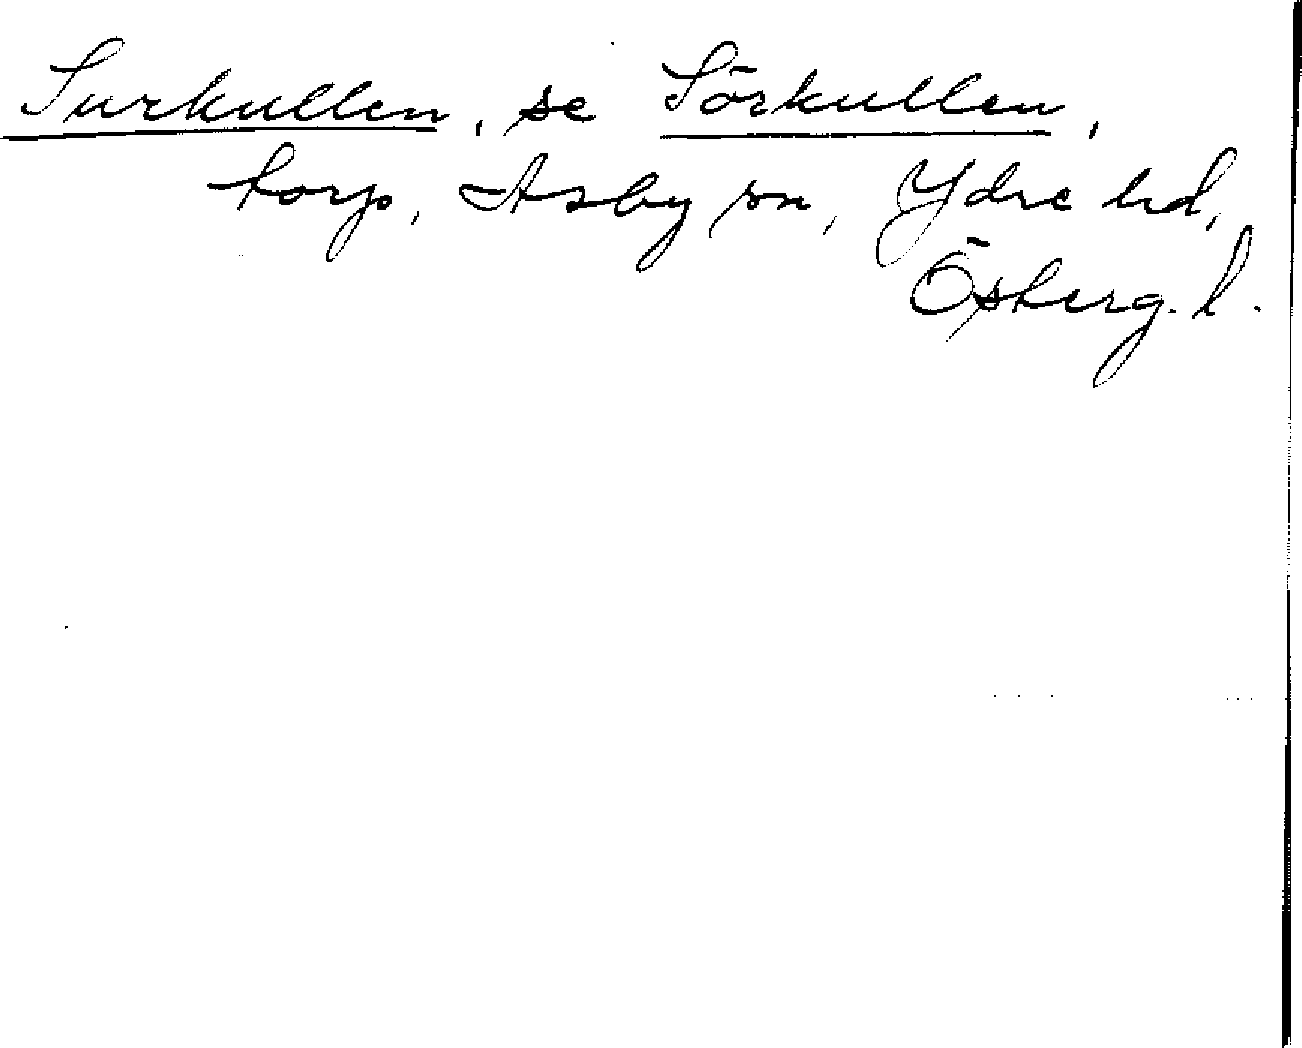 Surkullen, se Sörkullen,
torp, Asby sn, Ydre hd,
Österg. l.